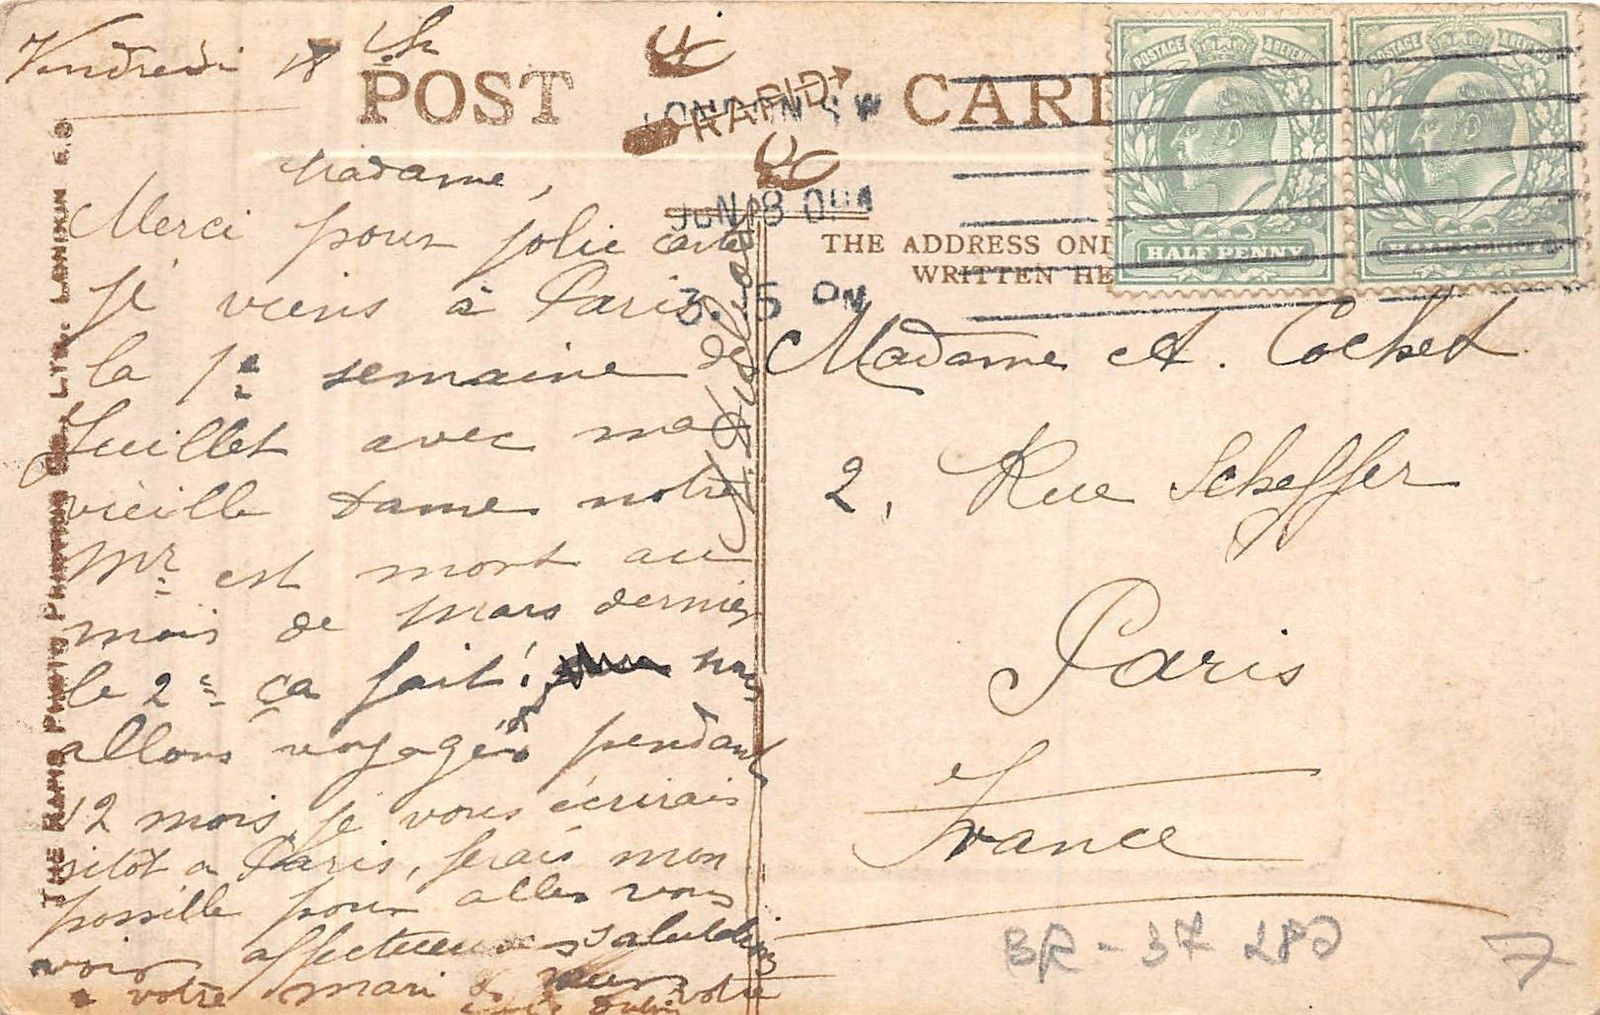 Vendredi 18
POST CARD
RAPID
LONDON S W
JUN 18 0
3.15 PM
POSTAGE & REVENUE
HALF PENNY
POSTAGE & REVENUE
HALF PENNY
THE ADDRESS ONL
WRITTEN HE
THE RAPID PHOTO PRINTING CO., LTD., LONDON E.C
Madame,
Merci pour jolie carte
je viens à Paris
la 1e semaine de
Juillet avec ma
vieille dame notre
Mr est mort au
mois de Mars dernier
le 2e ça fait! nous
allons voyager pendant
12 mois, je vous écrirais
sitôt a Paris, ferais mon
possible pour aller vous
voir affectueuses salutations
a votre mari & votre
Madame A. Cochet
2, Rue Scheffer
Paris
France
BR-37 280
7